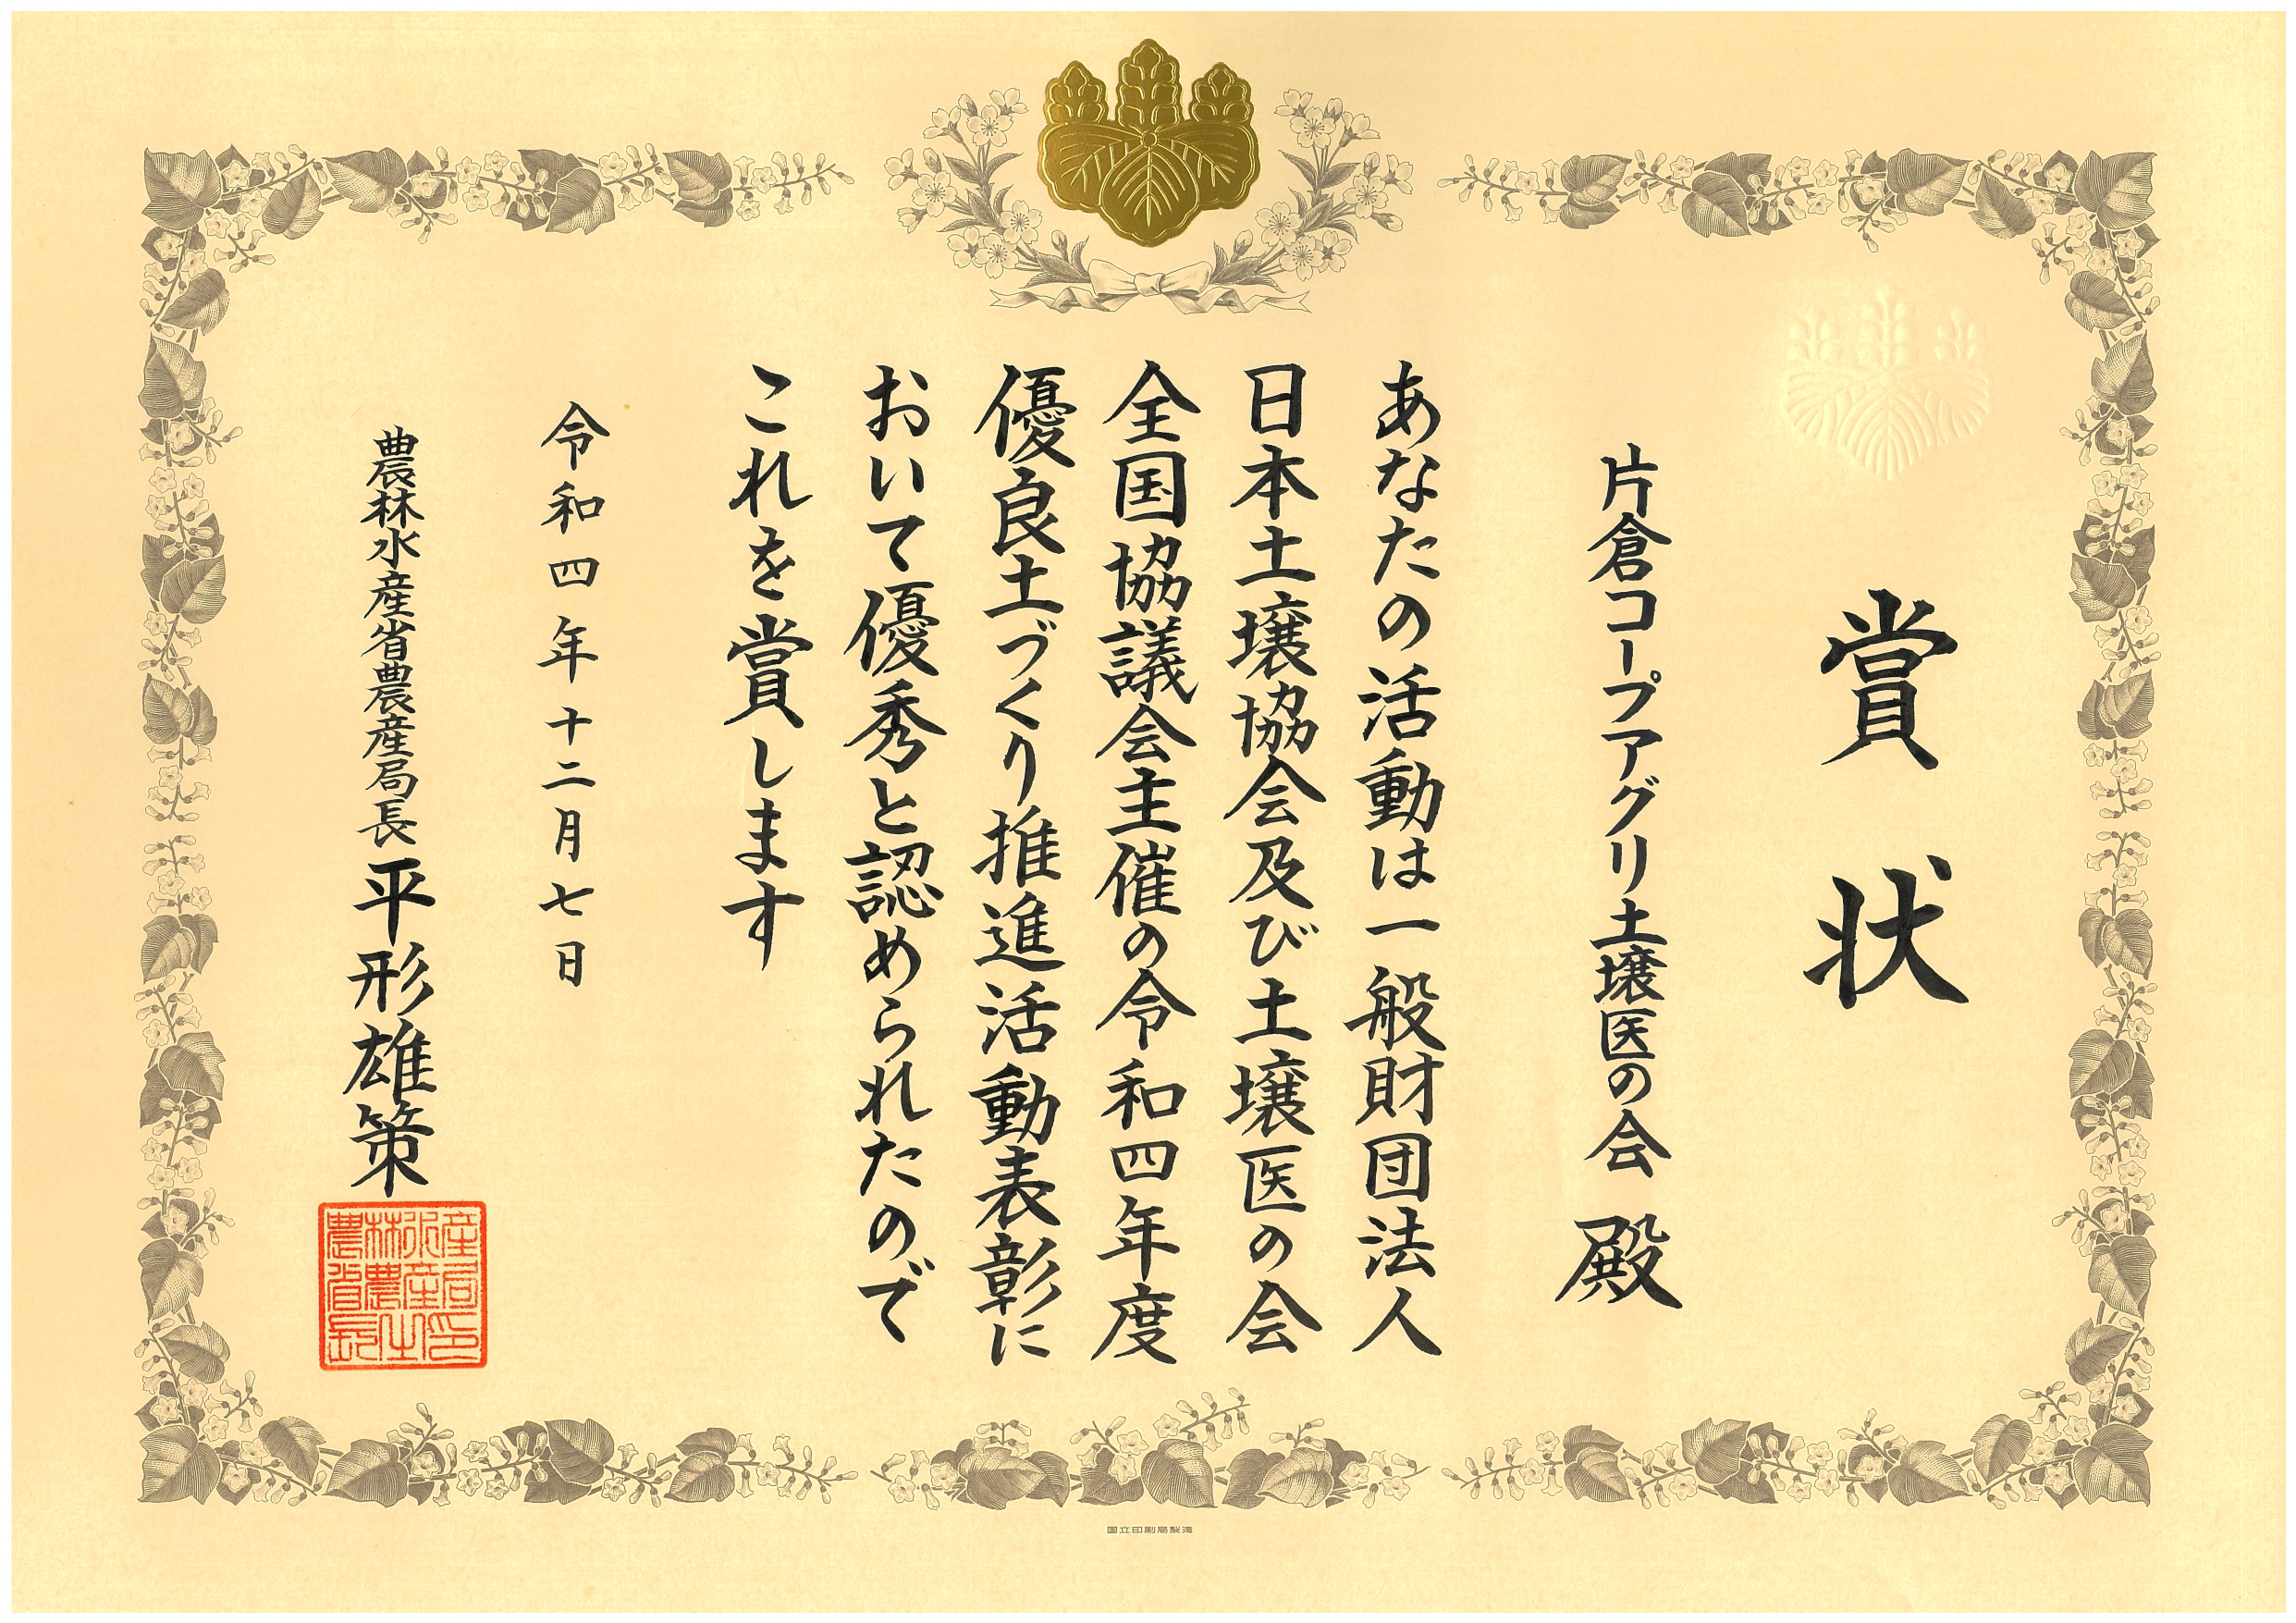 賞状
片倉コープアグリ土壌医の会 殿
あなたの活動は一般財団法人
日本土壌協会及び土壌医の会
全国協議会主催の令和四年度
優良土づくり推進活動表彰に
おいて優秀と認められたので
これを賞します
令和四年十二月七日
農林水産省農産局長 平形雄策
農林水産
省農産局
長之印
国立印刷局製造